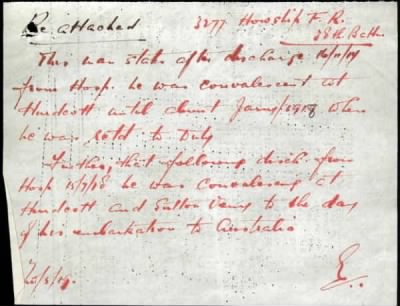 Re attached
3277 Howship F. R.
38th Battn
This man states after discharge 16/11/17
from Hosp. he was convalescent at
Hurdcott until about Jany/1918 when
he was retd to Duty
Further, that following disch. from
Hosp 15/7/18 he was convalescing at
Hurdcott and Sutton Veny to the day
of his embarkation to Australia
20/5/19.